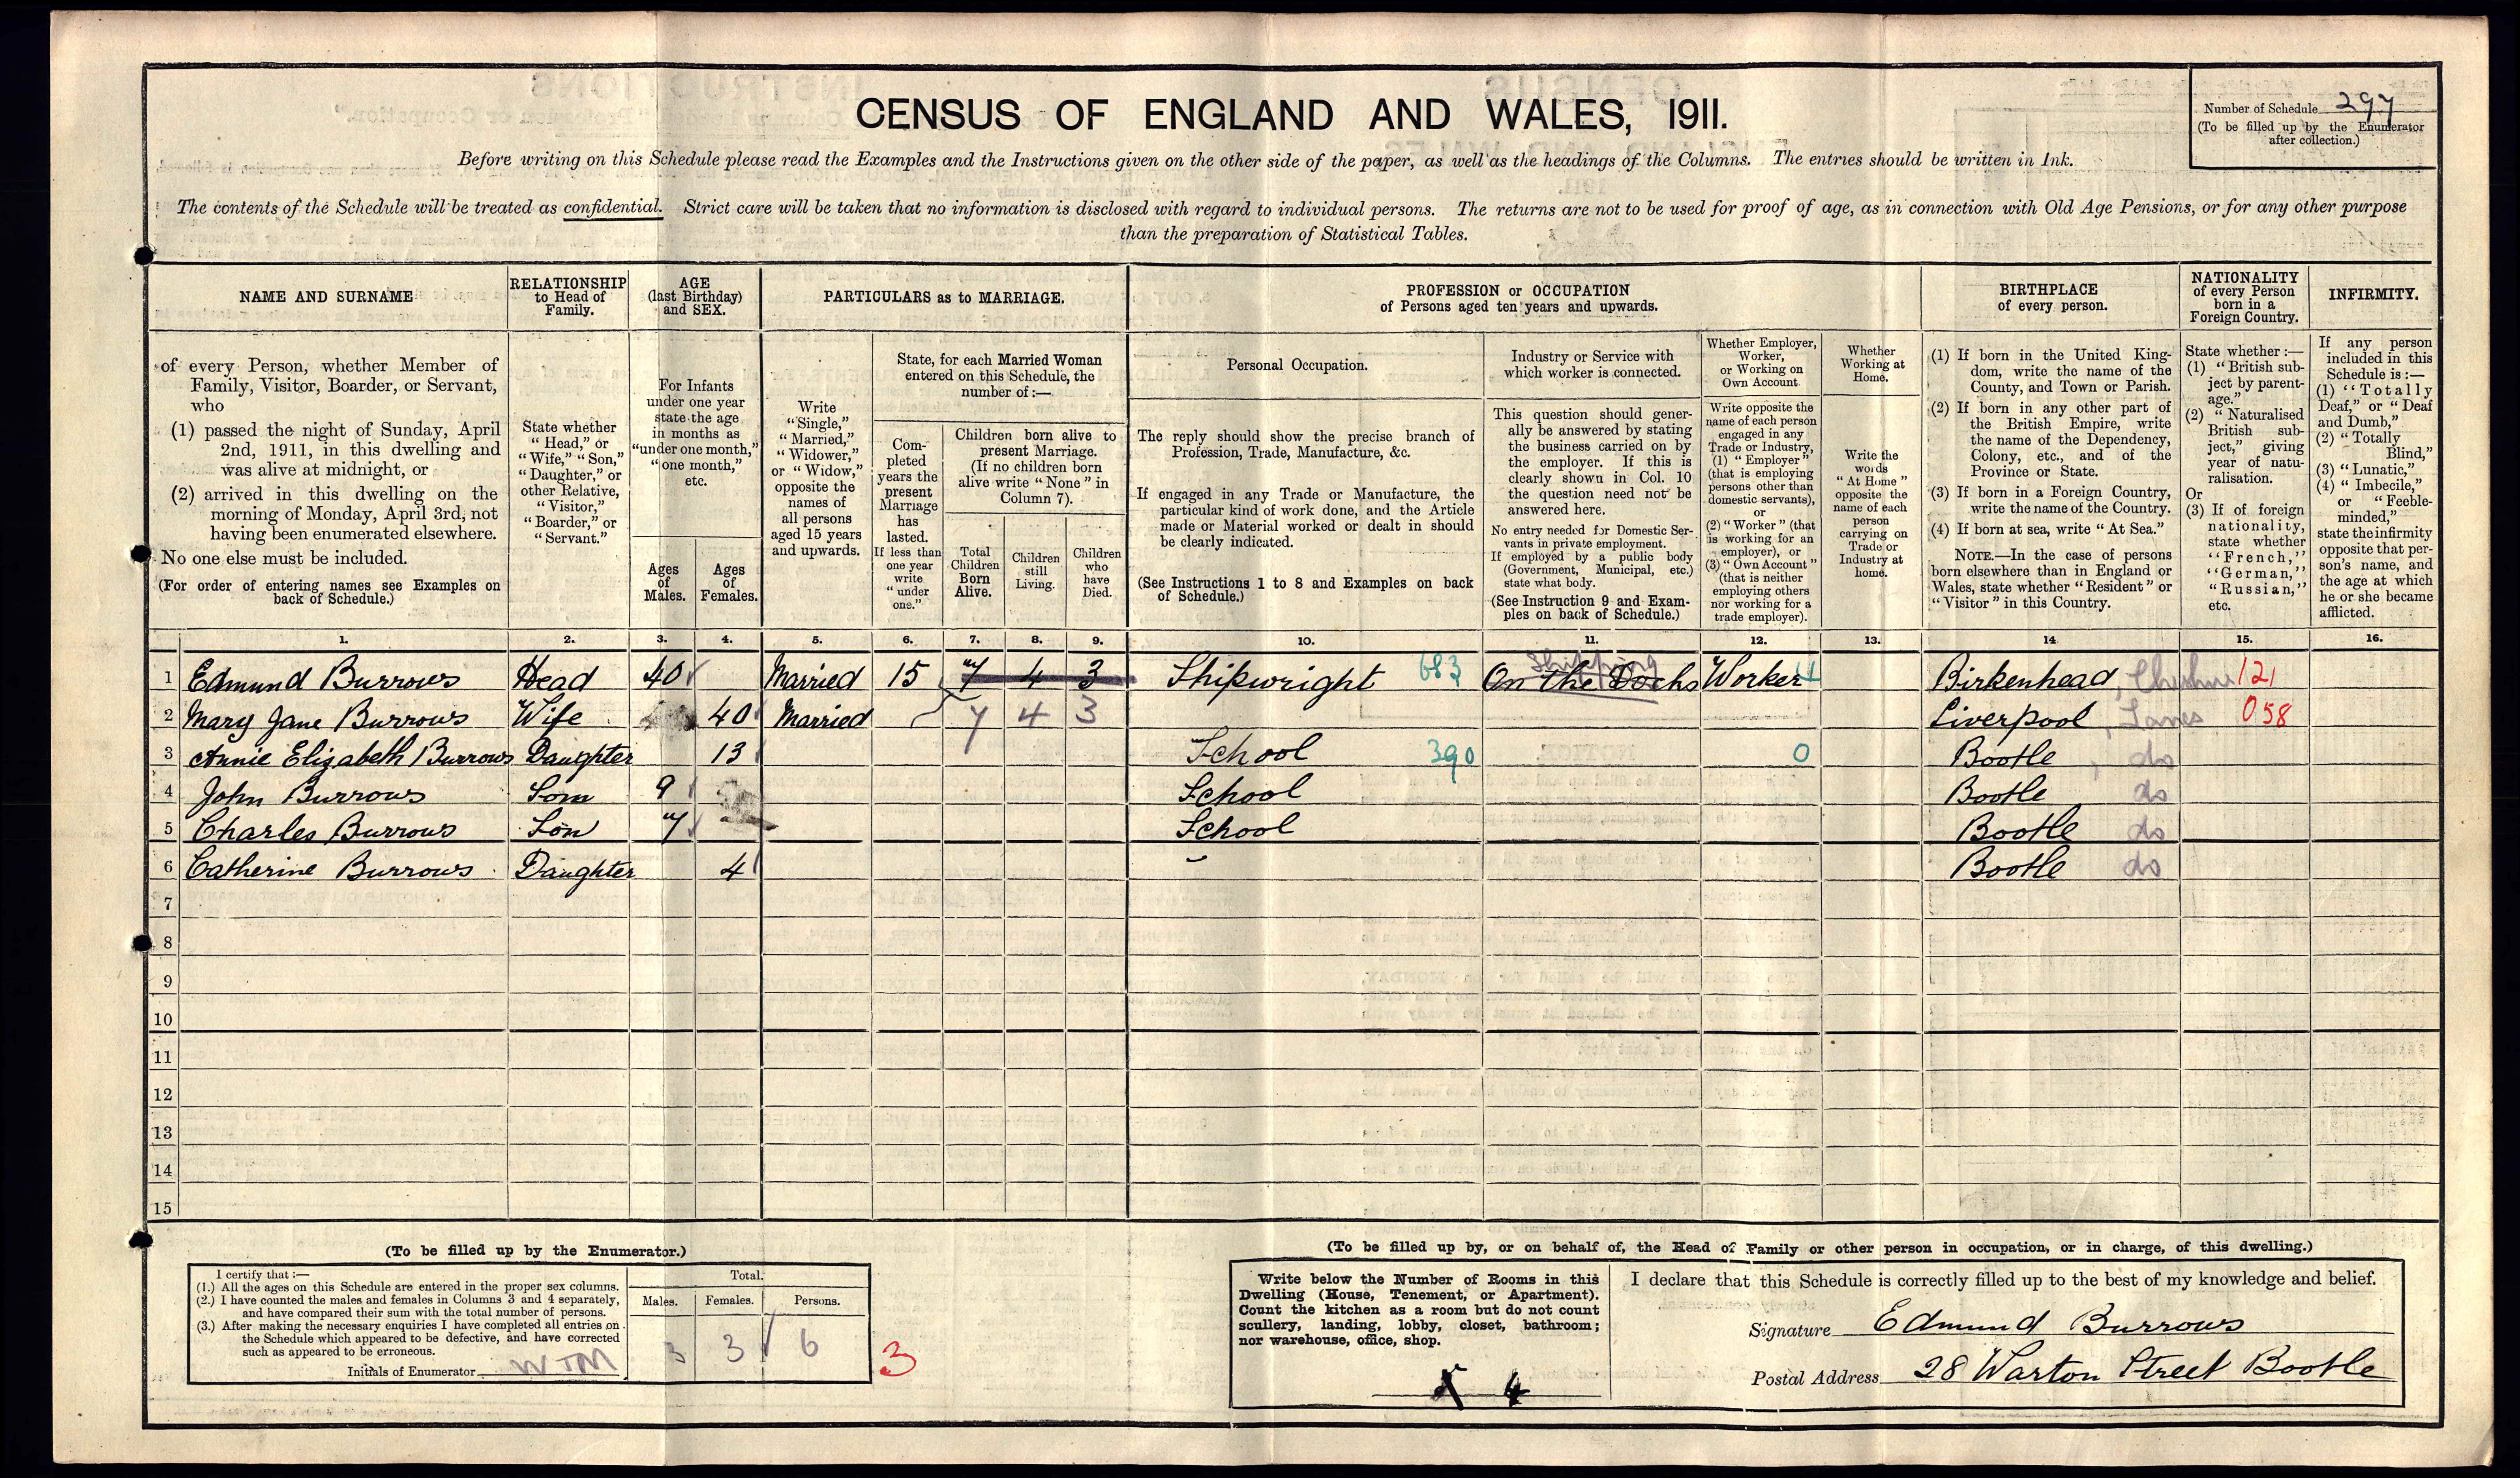 CENSUS OF ENGLAND AND WALES, 1911.
Number of Schedule 297
(To be filled up by the Enumerator
after collection.)
Before writing on this Schedule please read the Examples and the Instructions given on the other side of the paper, as well as the headings of the Columns. The entries should be written in Ink.
The contents of the Schedule will be treated as confidential. Strict care will be taken that no information is disclosed with regard to individual persons. The returns are not to be used for proof of age, as in connection with Old Age Pensions, or for any other purpose
than the preparation of Statistical Tables.
NAME AND SURNAME
of every Person, whether Member of
Family, Visitor, Boarder, or Servant,
who
(1) passed the night of Sunday, April
2nd, 1911, in this dwelling and
was alive at midnight, or
(2) arrived in this dwelling on the
morning of Monday, April 3rd, not
having been enumerated elsewhere.
No one else must be included.
(For order of entering names see Examples on
back of Schedule.)
RELATIONSHIP
to Head of
Family.
State whether
"Head," or
"Wife," "Son,"
"Daughter," or
other Relative,
"Visitor,"
"Boarder," or
"Servant."
AGE
(last Birthday)
and SEX.
For Infants
under one year
state the age
in months as
"under one month,"
"one month,"
etc.
Ages
of
Males.
Ages
of
Females.
PARTICULARS as to MARRIAGE.
Write
"Single,"
"Married,"
"Widower,"
or "Widow,"
opposite the
names of
all persons
aged 15 years
and upwards.
State, for each Married Woman
entered on this Schedule, the
number of:—
Com-
pleted
years the
present
Marriage
has
lasted.
If less than
one year
write
"under
one."
Children born alive to
present Marriage.
(If no children born
alive write "None" in
Column 7).
Total
Children
Born
Alive.
Children
still
Living.
Children
who
have
Died.
PROFESSION or OCCUPATION
of Persons aged ten years and upwards.
Personal Occupation.
The reply should show the precise branch of
Profession, Trade, Manufacture, &c.
If engaged in any Trade or Manufacture, the
particular kind of work done, and the Article
made or Material worked or dealt in should
be clearly indicated.
(See Instructions 1 to 8 and Examples on back
of Schedule.)
Industry or Service with
which worker is connected.
This question should gener-
ally be answered by stating
the business carried on by
the employer. If this is
clearly shown in Col. 10
the question need not be
answered here.
No entry needed for Domestic Ser-
vants in private employment.
If employed by a public body
(Government, Municipal, etc.)
state what body.
(See Instruction 9 and Exam-
ples on back of Schedule.)
Whether Employer,
Worker,
or Working on
Own Account
Write opposite the
name of each person
engaged in any
Trade or Industry,
(1) "Employer"
(that is employing
persons other than
domestic servants),
or
(2) "Worker" (that
is working for an
employer), or
(3) "Own Account"
(that is neither
employing others
nor working for a
trade employer).
Whether
Working at
Home.
Write the
words
"At Home"
opposite the
name of each
person
carrying on
Trade or
Industry at
home.
BIRTHPLACE
of every person.
(1) If born in the United King-
dom, write the name of the
County, and Town or Parish.
(2) If born in any other part of
the British Empire, write
the name of the Dependency,
Colony, etc., and of the
Province or State.
(3) If born in a Foreign Country,
write the name of the Country.
(4) If born at sea, write "At Sea."
NOTE.—In the case of persons
born elsewhere than in England or
Wales, state whether "Resident" or
"Visitor" in this Country.
NATIONALITY
of every Person
born in a
Foreign Country.
State whether:—
(1) "British sub-
ject by parent-
age."
(2) "Naturalised
British sub-
ject," giving
year of natu-
ralisation.
Or
(3) If of foreign
nationality,
state whether
"French,"
"German,"
"Russian,"
etc.
INFIRMITY.
If any person
included in this
Schedule is:—
(1) "Totally
Deaf," or "Deaf
and Dumb,"
(2) "Totally
Blind,"
(3) "Lunatic,"
(4) "Imbecile,"
or "Feeble-
minded,"
state the infirmity
opposite that per-
son's name, and
the age at which
he or she became
afflicted.
1. 2. 3. 4. 5. 6. 7. 8. 9. 10. 11. 12. 13. 14 15. 16.
Shipping
1 Edmund Burrows Head 40 Married 15 7 4 3 Shipwright 683 On the Docks Worker Birkenhead, Cheshire 121
2 Mary Jane Burrows Wife 40 Married 7 4 3 Liverpool, Lancs 058
3 Annie Elizabeth Burrows Daughter 13 School 390 0 Bootle, do
4 John Burrows Son 9 School Bootle do
5 Charles Burrows Son 7 School Bootle do
6 Catherine Burrows Daughter 4 – Bootle do
7
8
9
10
11
12
13
14
15
(To be filled up by the Enumerator.)
I certify that:—
(1.) All the ages on this Schedule are entered in the proper sex columns.
(2.) I have counted the males and females in Columns 3 and 4 separately,
and have compared their sum with the total number of persons.
(3.) After making the necessary enquiries I have completed all entries on
the Schedule which appeared to be defective, and have corrected
such as appeared to be erroneous.
Initials of Enumerator
Total.
Males. Females. Persons.
3 3 6
3
(To be filled up by, or on behalf of, the Head of Family or other person in occupation, or in charge, of this dwelling.)
Write below the Number of Rooms in this
Dwelling (House, Tenement, or Apartment).
Count the kitchen as a room but do not count
scullery, landing, lobby, closet, bathroom;
nor warehouse, office, shop.
4
I declare that this Schedule is correctly filled up to the best of my knowledge and belief.
Signature Edmund Burrows
Postal Address 28 Warton Street Bootle